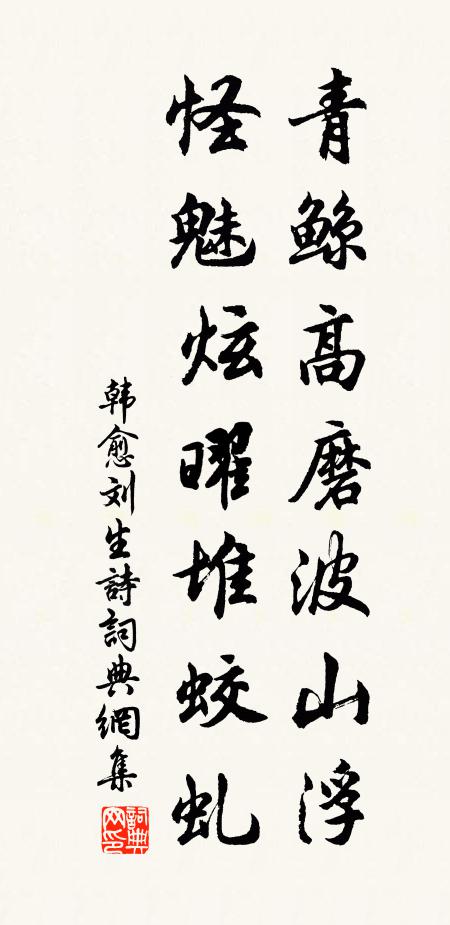 青鲸高磨波山浮
怪魅炫曜堆蛟虬
韩愈刘生詩詞典網集
詞典網印